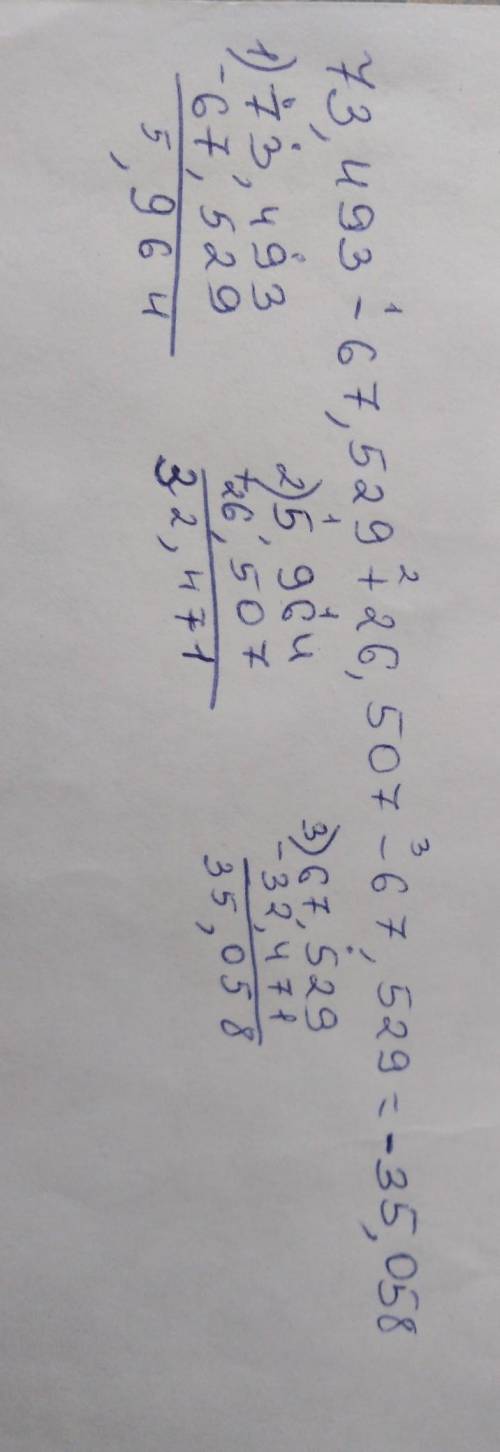 73,493 - ¹ 67,529 + ² 26,507 - ³ 67,529 = -35,058
1) 73,493
- 67,529
5,964
2) 5,964
+ 26,507
32,471
3) 67,529
- 32,471
35,058